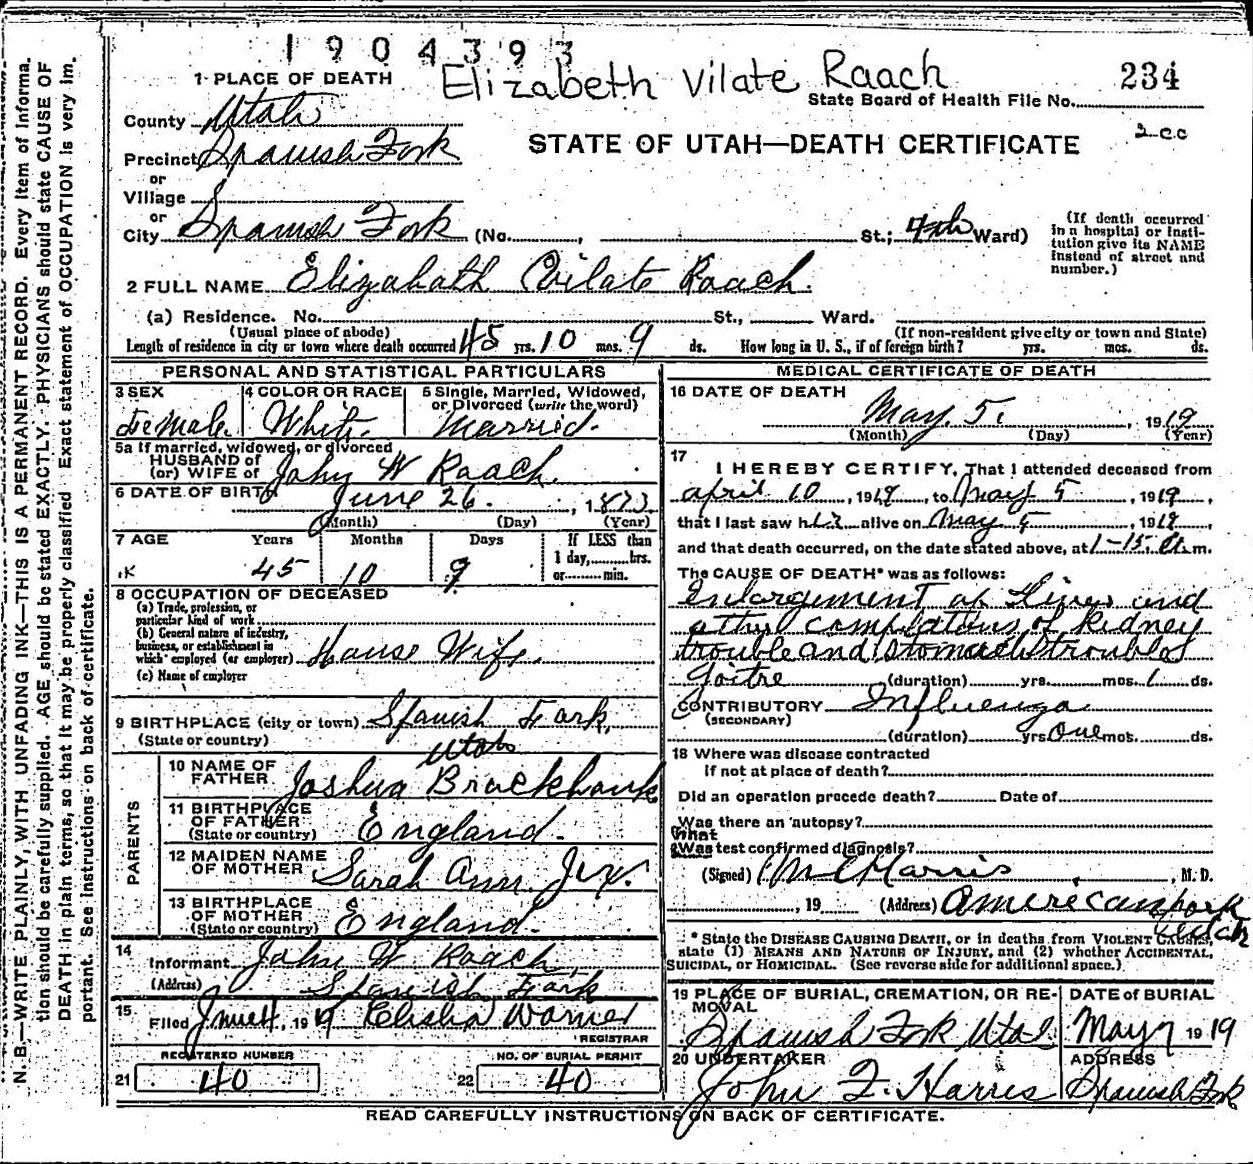 1904393
Elizabeth Vilate Raach
234
State Board of Health File No.
2 cc
STATE OF UTAH—DEATH CERTIFICATE
1 PLACE OF DEATH
County Utah
Precinct Spanish Fork
or
Village
or
City Spanish Fork (No. , St.; 4th Ward)
(If death occurred in a hospital or institution give its NAME instead of street and number.)
2 FULL NAME Elizabeth Vilate Raach.
(a) Residence. No. St., Ward.
(Usual place of abode) (If non-resident give city or town and State)
Length of residence in city or town where death occurred 45 yrs. 10 mos. 9 ds. How long in U. S., if of foreign birth? yrs. mos. ds.
PERSONAL AND STATISTICAL PARTICULARS
3 SEX Female
4 COLOR OR RACE White
5 Single, Married, Widowed, or Divorced (write the word) Married.
5a If married, widowed, or divorced
HUSBAND of
(or) WIFE of John W Raach.
6 DATE OF BIRTH June 26. , 1873
(Month) (Day) (Year)
7 AGE Years Months Days If LESS than
1 day, hrs.
or min.
45 10 9
8 OCCUPATION OF DECEASED
(a) Trade, profession, or particular kind of work
(b) General nature of industry, business, or establishment in which employed (or employer) House Wife.
(c) Name of employer
9 BIRTHPLACE (city or town) Spanish Fork,
(State or country) Utah
PARENTS
10 NAME OF FATHER Joshua Brockbank
11 BIRTHPLACE OF FATHER (State or country) England.
12 MAIDEN NAME OF MOTHER Sarah Ann Jex.
13 BIRTHPLACE OF MOTHER (State or country) England.
14
Informant John W Raach
(Address) Spanish Fork
15
Filed June 4, 1919
REGISTRAR
REGISTERED NUMBER
21 40
NO. OF BURIAL PERMIT
22 40
MEDICAL CERTIFICATE OF DEATH
16 DATE OF DEATH
May. 5. , 1919
(Month) (Day) (Year)
17
I HEREBY CERTIFY, That I attended deceased from
april 10, 1919, to May 5, 1919,
that I last saw her alive on May 5, 1919,
and that death occurred, on the date stated above, at 1-15 a.m.
The CAUSE OF DEATH* was as follows:
Enlargement of Liver and
other complations of kidney
trouble and stomach troubles
Goitre (duration) yrs. mos. 1 ds.
CONTRIBUTORY Influenza
(SECONDARY)
(duration) yrs One mos. ds.
18 Where was disease contracted
if not at place of death?
Did an operation precede death? Date of
Was there an autopsy?
What
Was test confirmed diagnosis?
(Signed) M.D.
, 19 (Address) American fork
Utah
* State the DISEASE CAUSING DEATH, or in deaths from VIOLENT CAUSES,
state (1) MEANS AND NATURE OF INJURY, and (2) whether ACCIDENTAL,
SUICIDAL, or HOMICIDAL. (See reverse side for additional space.)
19 PLACE OF BURIAL, CREMATION, OR REMOVAL
Spanish Fork Utah
DATE of BURIAL
May 7 1919
20 UNDERTAKER
John F. Harris
ADDRESS
Spanish Fork
READ CAREFULLY INSTRUCTIONS ON BACK OF CERTIFICATE.
N. B.—WRITE PLAINLY, WITH UNFADING INK—THIS IS A PERMANENT RECORD. Every item of informa-
tion should be carefully supplied. AGE should be stated EXACTLY. PHYSICIANS should state CAUSE OF
DEATH in plain terms, so that it may be properly classified Exact statement of OCCUPATION is very im-
portant. See instructions on back of certificate.